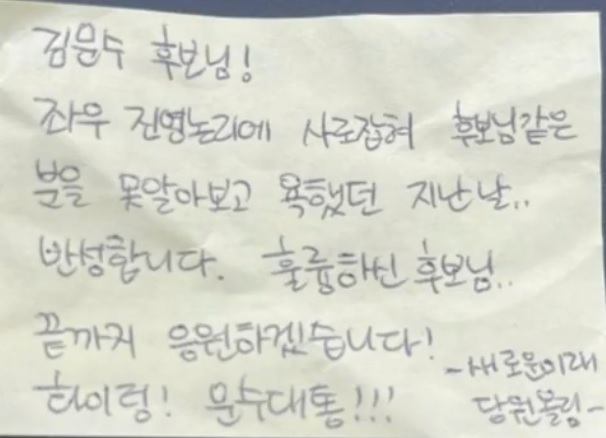 김문수 후보님!
좌우 진영논리에 사로잡혀 후보님같은
분을 못알아보고 욕했던 지난날..
반성합니다. 훌륭하신 후보님..
끝까지 응원하겠습니다!
화이팅! 문수대통!!!
-새로운미래
당원올림-